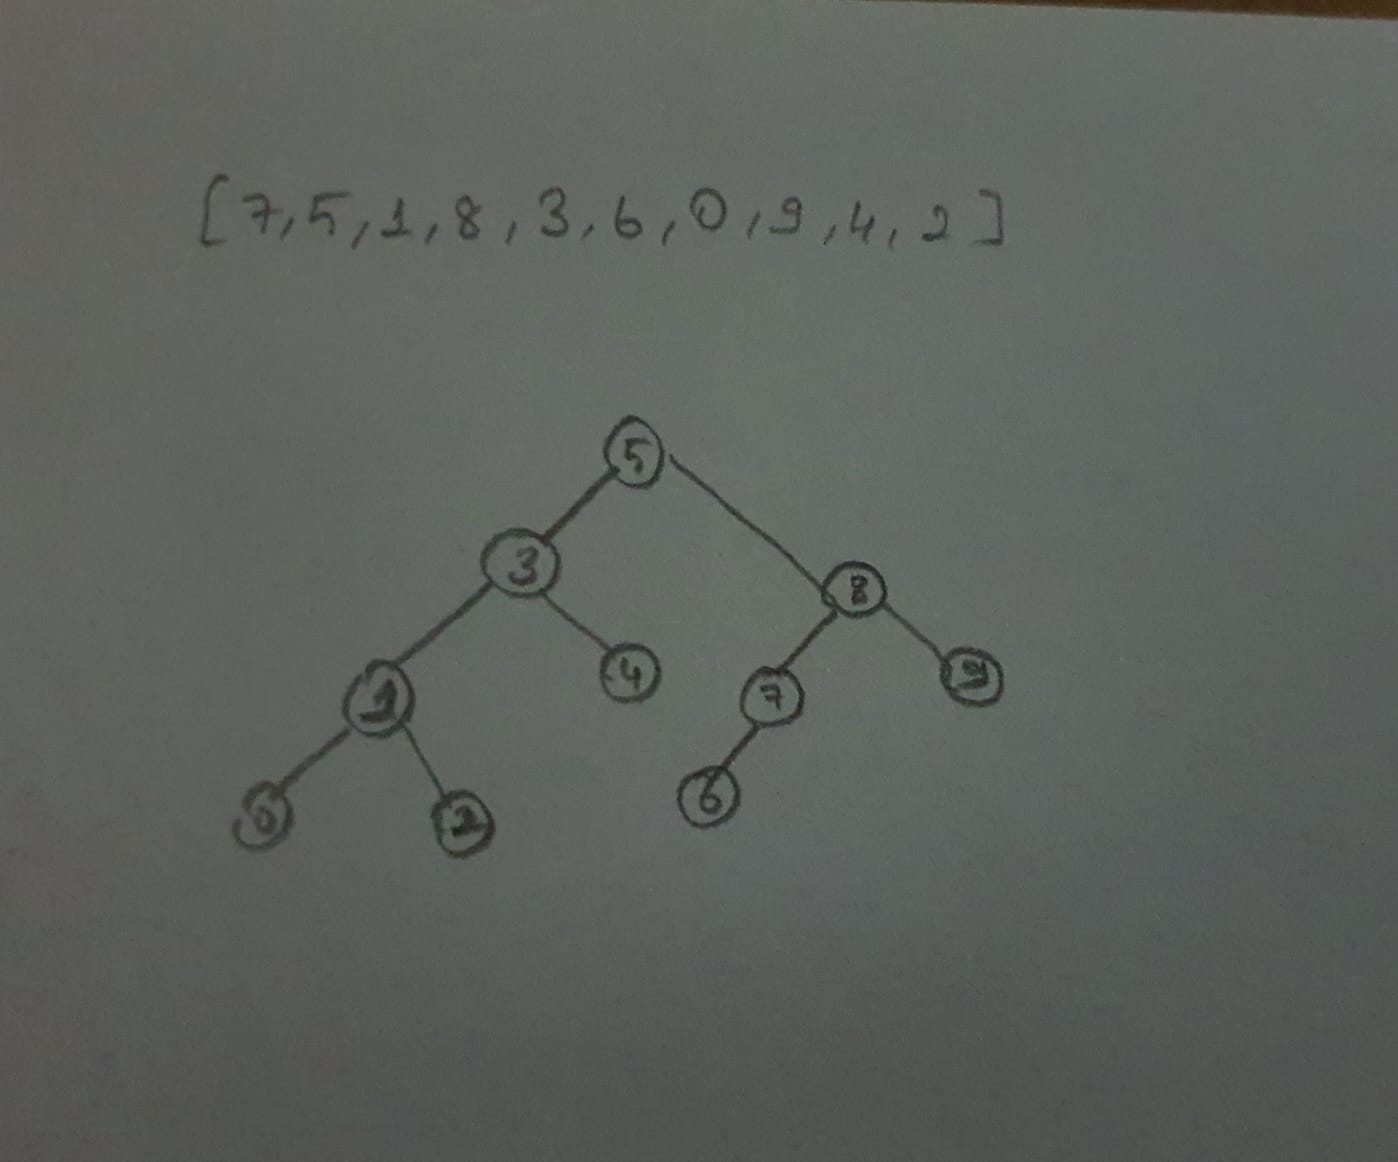 [7,5,1,8,3,6,0,9,4,2]
5
3 8
1 4 7 9
0 2 6